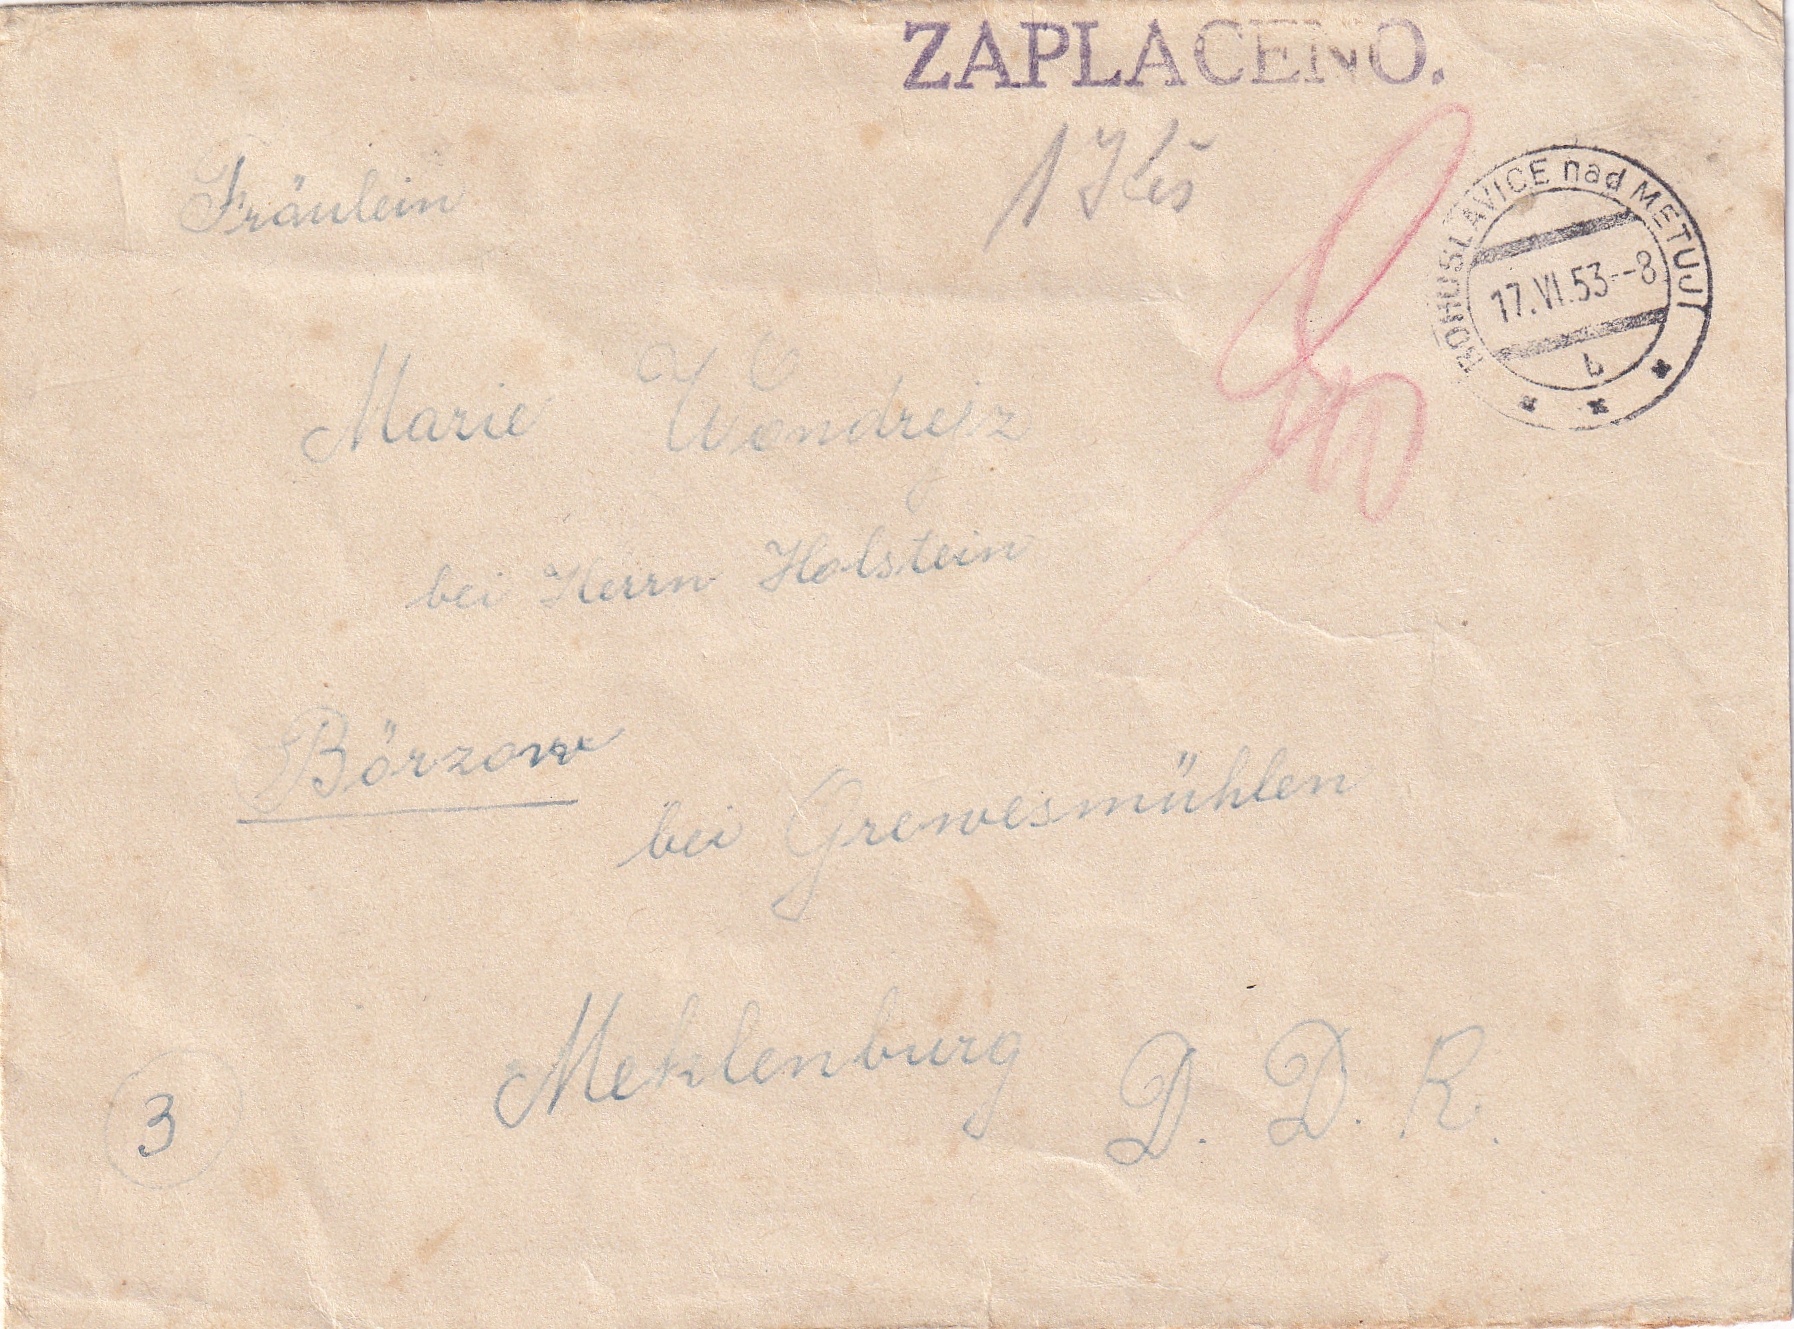 ZAPLACENO.
1 Kčs
BOHUSLAVICE nad METUJÍ
17.VI.53--8
b
Fräulein
Marie Wondrejz
bei Herrn Holstein
Börzow
bei Grewesmühlen
Meklenburg D. D. R.
3